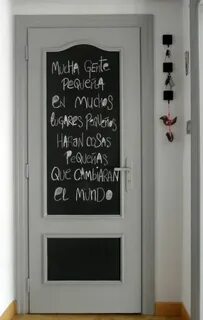 MUCHA GENTE
PEQUEÑA
EN MUCHOS
LUGARES PEQUEÑOS
HARAN COSAS
PEQUEÑAS
QUE CAMBIARAN
EL MUNDO